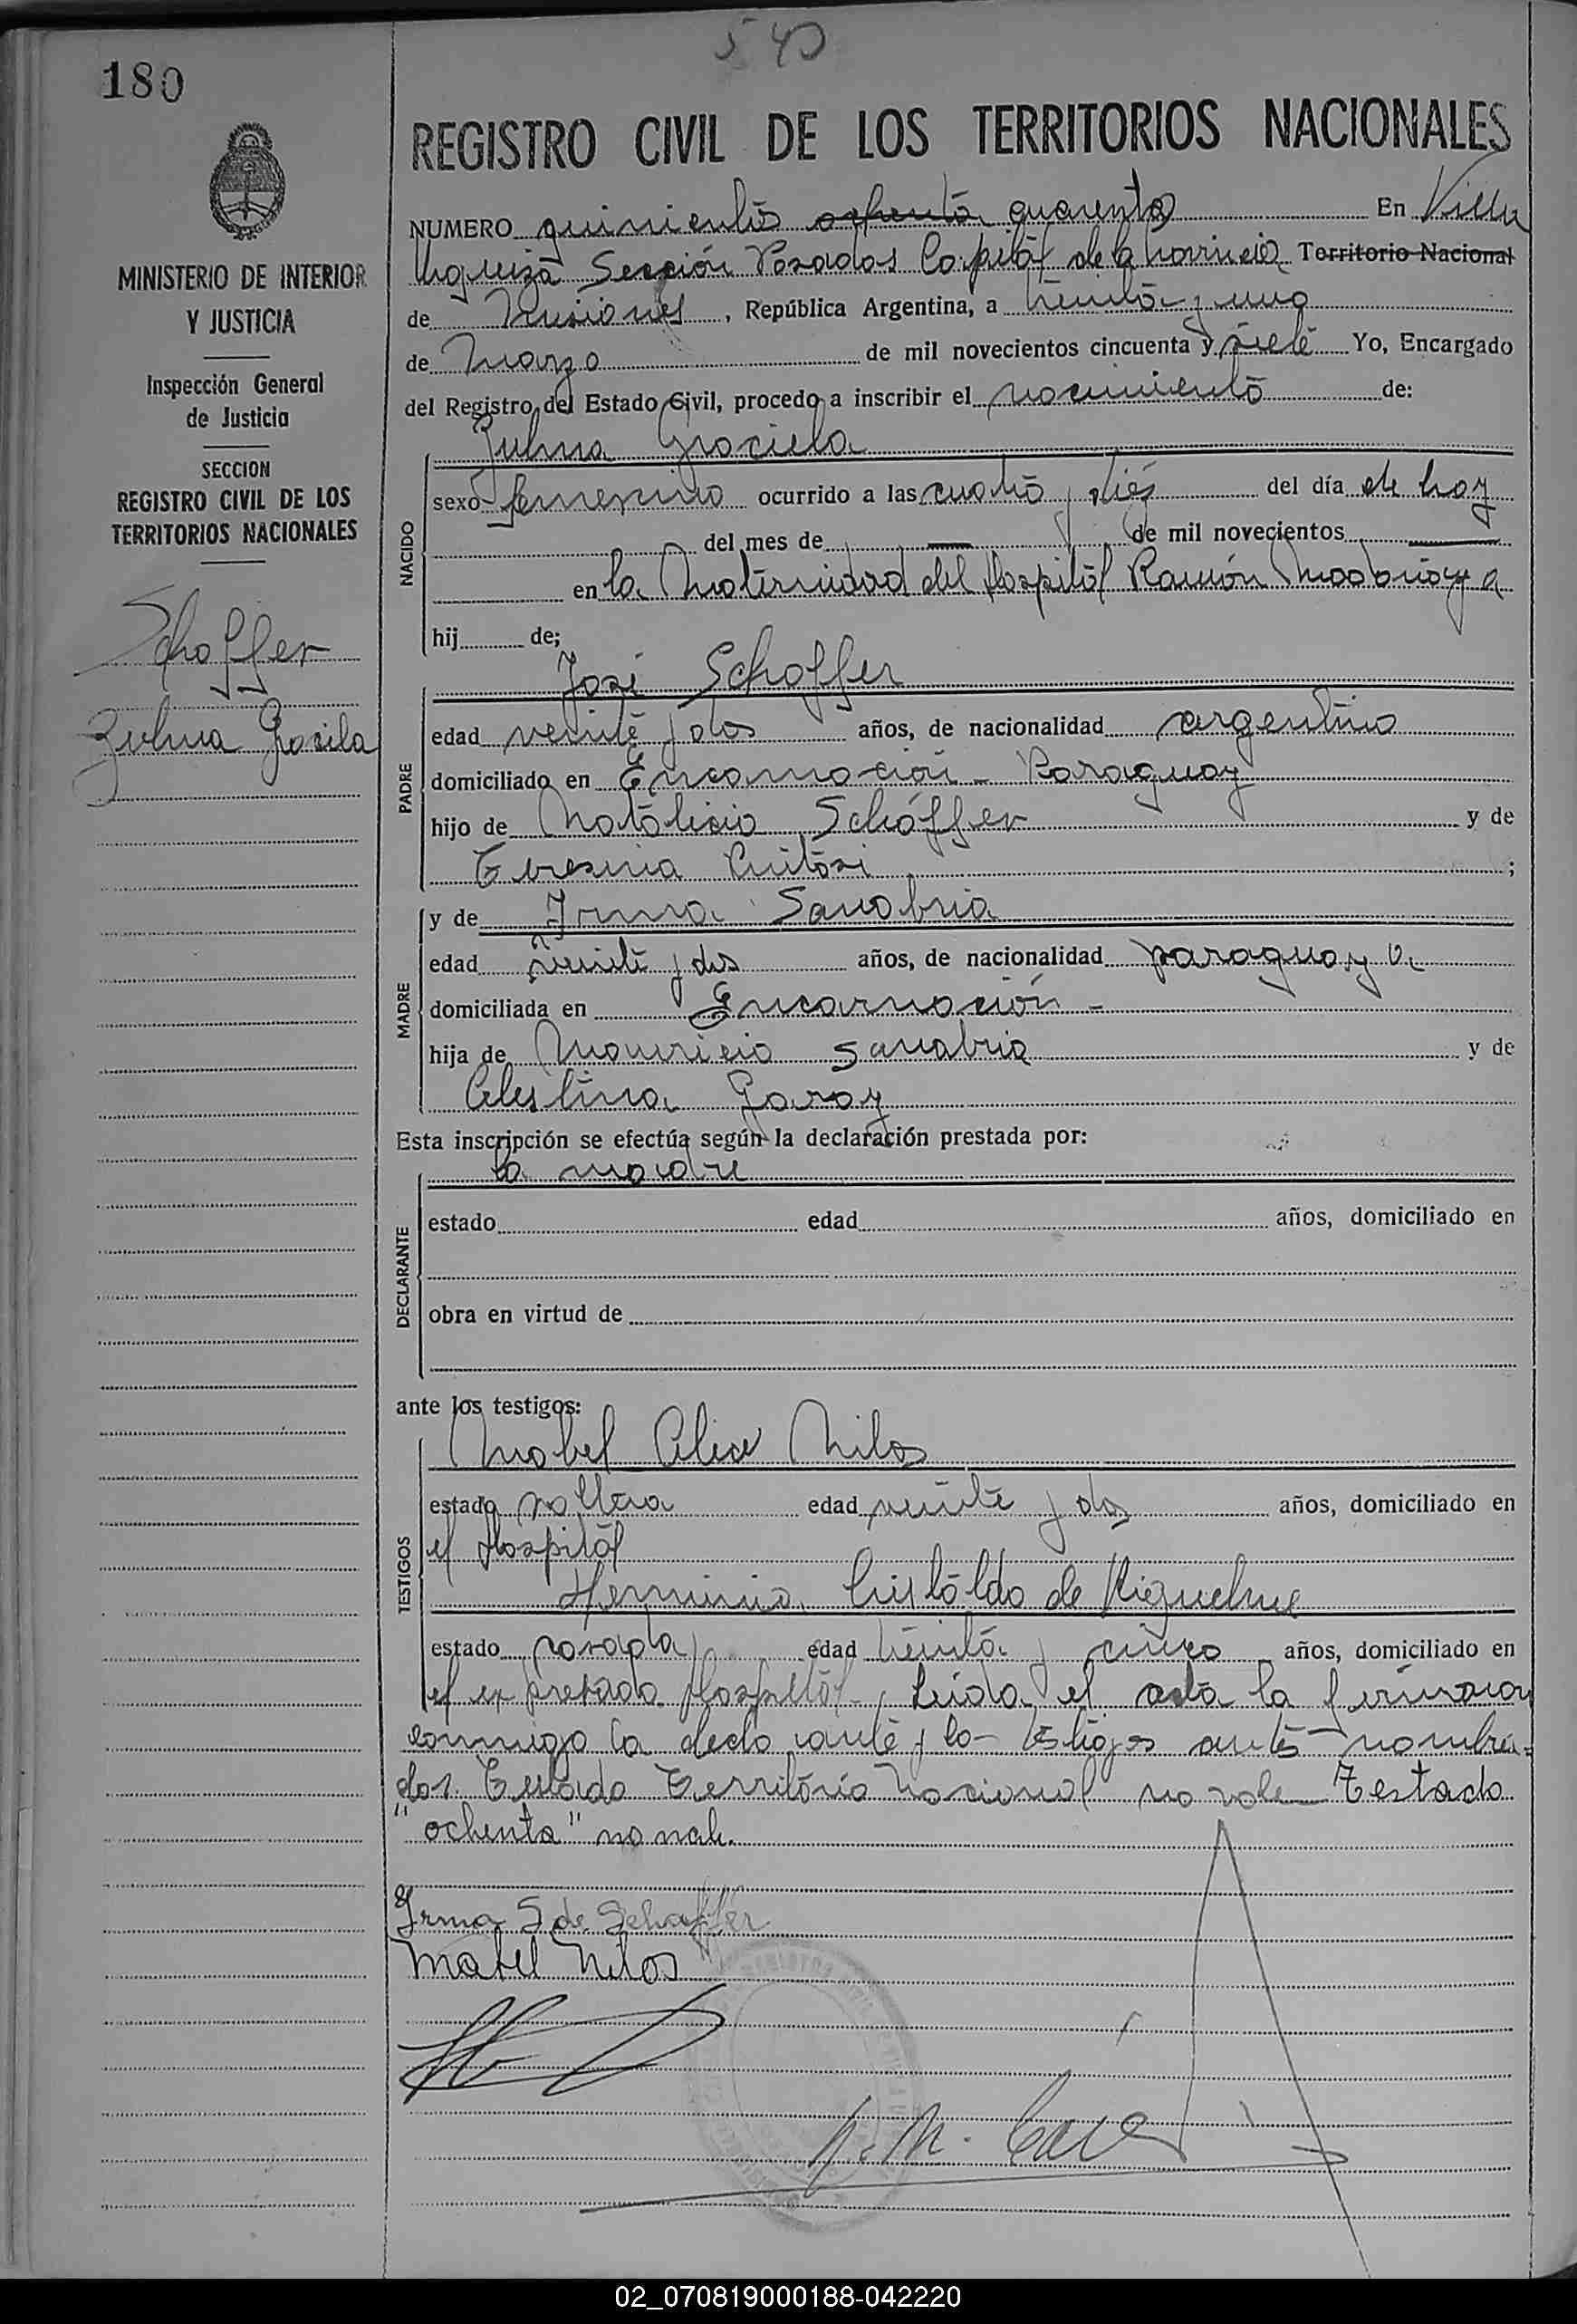 540
180
REGISTRO CIVIL DE LOS TERRITORIOS NACIONALES
MINISTERIO DE INTERIOR
Y JUSTICIA
Inspección General
de Justicia
SECCION
REGISTRO CIVIL DE LOS
TERRITORIOS NACIONALES
Schaffer
Zulma Graciela
NUMERO quinientos ochenta cuarenta En Villa
Urquiza Sección Posadas Capital de la Provincia Territorio Nacional
de Misiones, República Argentina, a treinta y uno
de Marzo de mil novecientos cincuenta y siete Yo, Encargado
del Registro del Estado Civil, procedo a inscribir el nacimiento de:
Zulma Graciela
NACIDO
sexo femenino ocurrido a las cuatro y diés del día de hoy
del mes de — de mil novecientos —
en la Maternidad del Hospital Ramón Madariaga
hij de;
José Schaffer
PADRE
edad veinte y dos años, de nacionalidad argentino
domiciliado en Encarnación - Paraguay
hijo de Natalicio Schaffer y de
Teresina ;
y de Irma Sanabria
MADRE
edad veinte y dos años, de nacionalidad paraguaya
domiciliada en Encarnación -
hija de Mauricio Sanabria y de
Celestina Garay
Esta inscripción se efectúa según la declaración prestada por:
la madre
DECLARANTE
estado edad años, domiciliado en
obra en virtud de
ante los testigos:
Mabel Alice Milos
TESTIGOS
estado soltera edad veinte y dos años, domiciliado en
el Hospital
Herminia Cristaldo de Riquelme
estado casada edad treinta y cinco años, domiciliado en
el expresado Hospital. Leida el acta la firmaron
conmigo la declarante y los testigos antes nombra-
dos. Testado Territorio Nacional no vale Testado
"ochenta" no vale.
Irma S de Schaffer
Mabel Milos
02_070819000188-042220